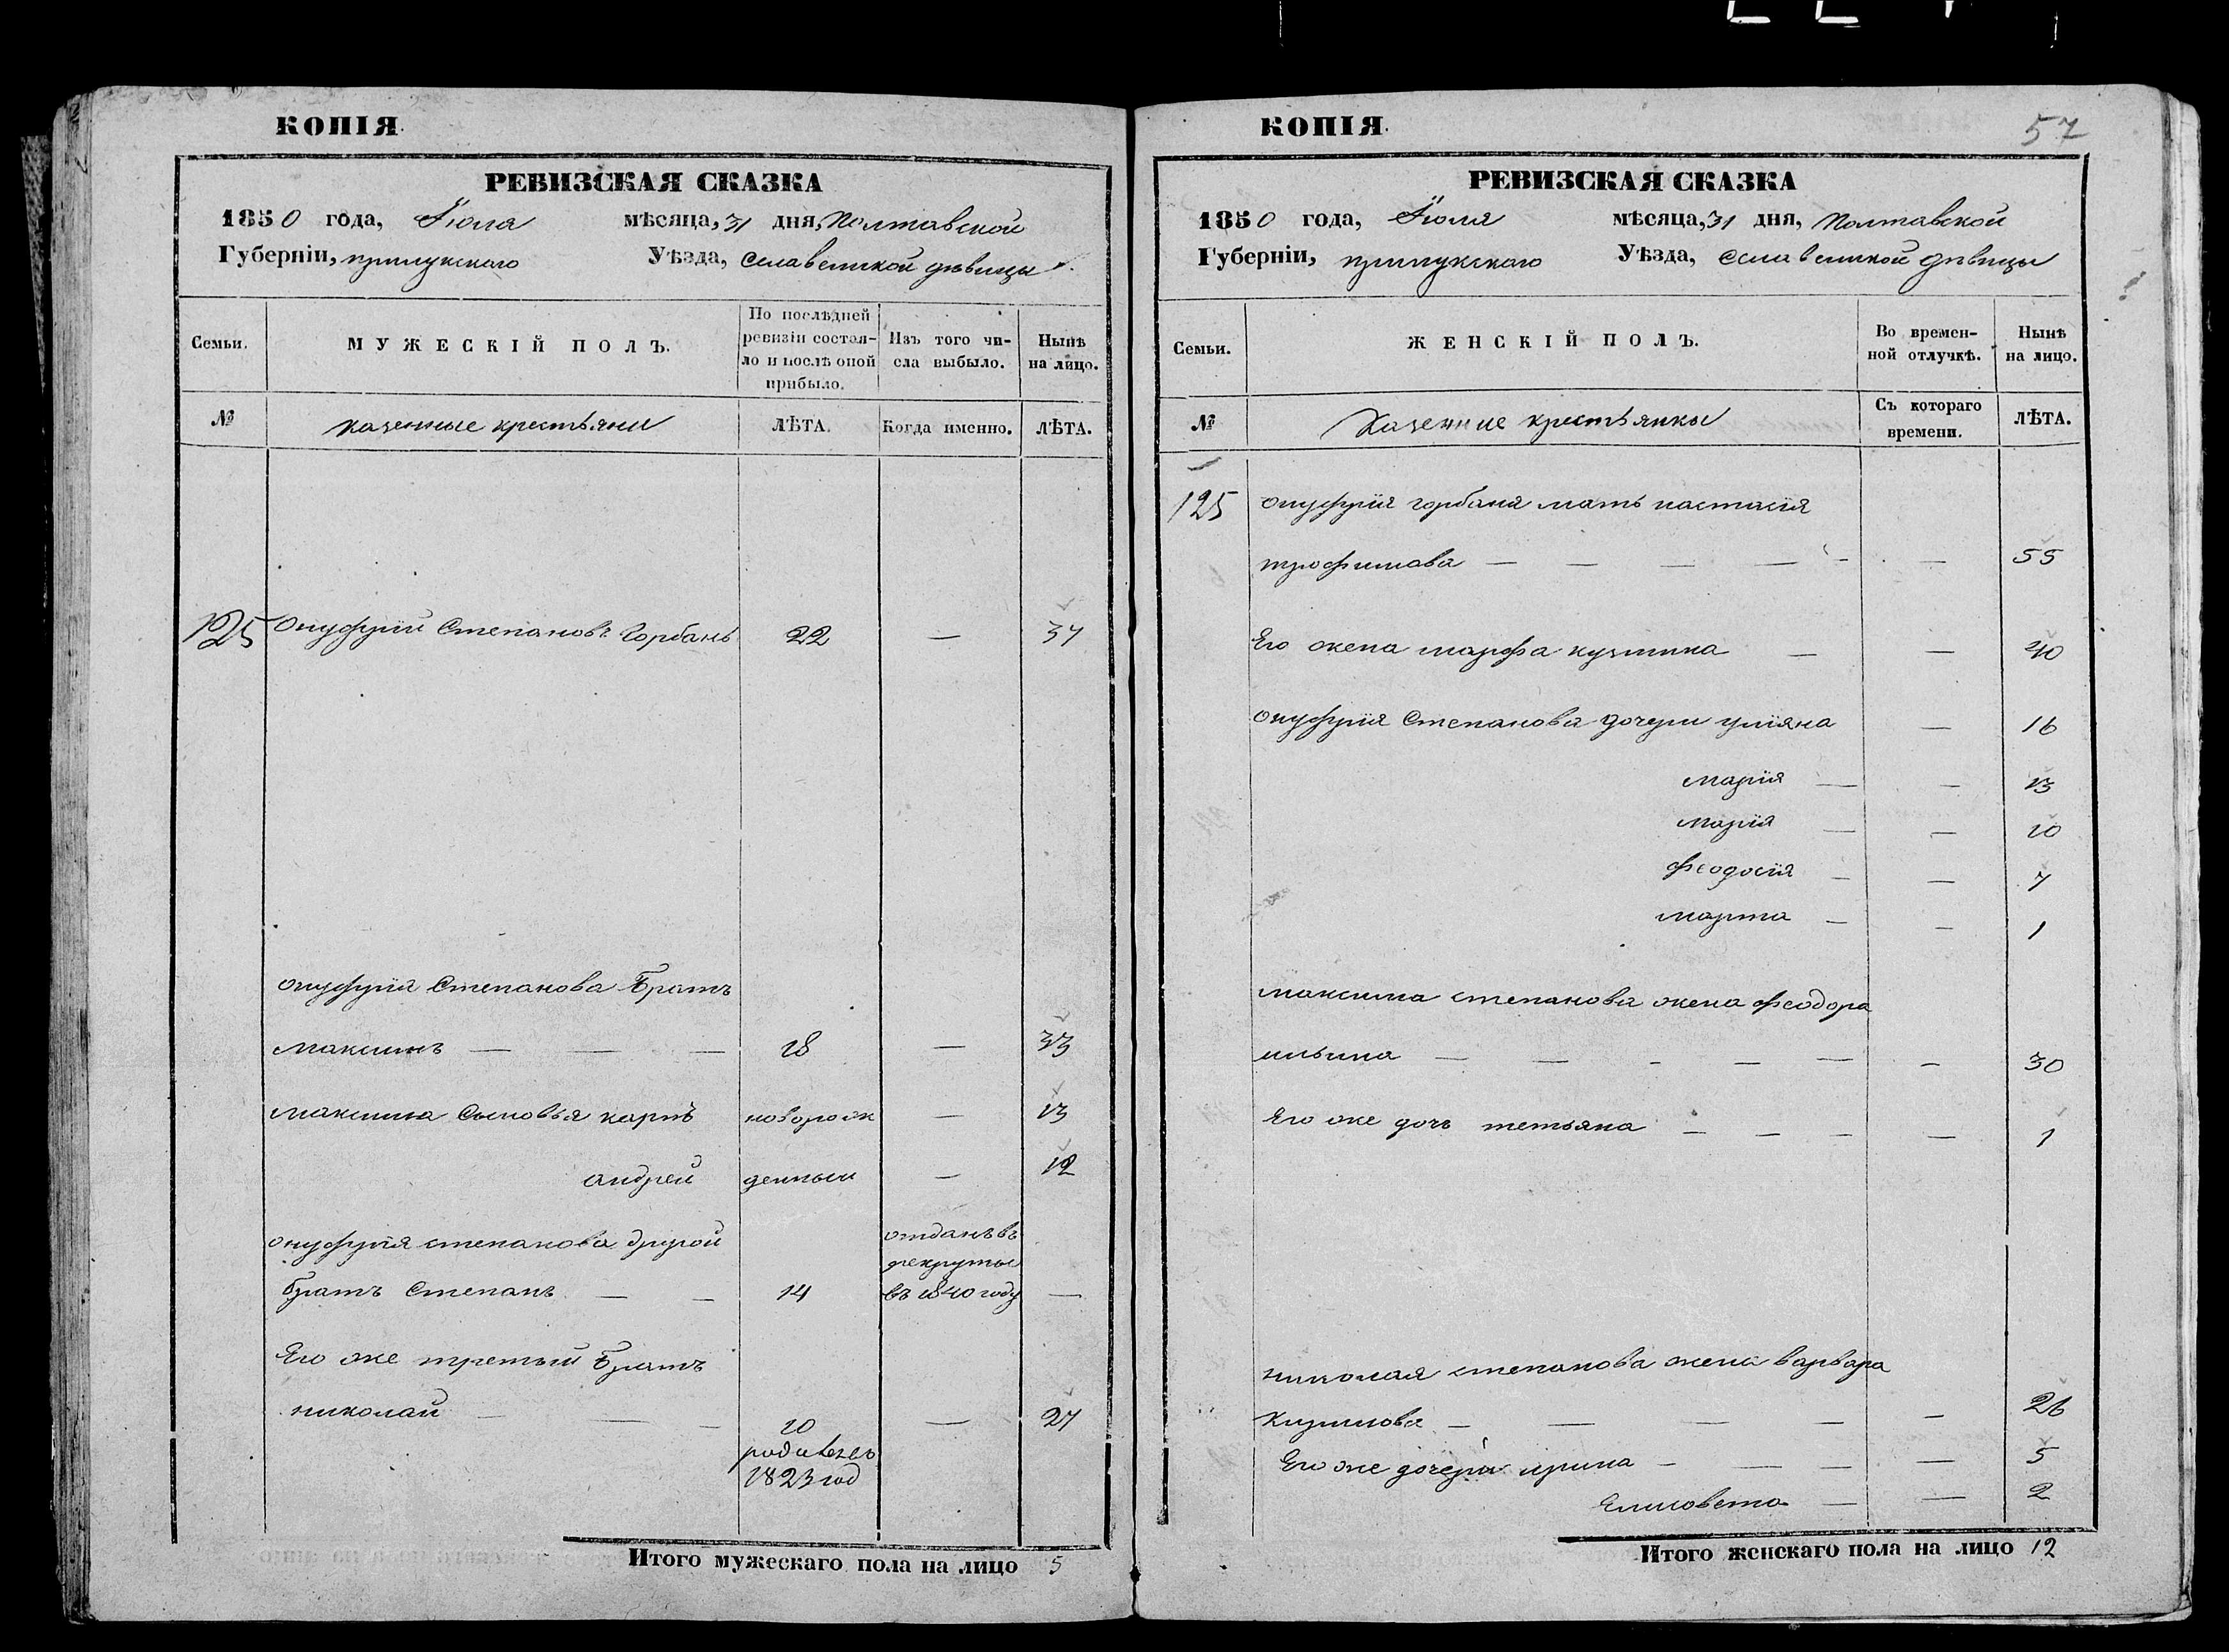 КОПІЯ.
РЕВИЗСКАЯ СКАЗКА
1850 года, Іюля мѣсяца, 31 дня, Полтавской
Губерніи, прилукскаго Уѣзда, села великой дѣвицы
Семьи.
МУЖЕСКІЙ ПОЛЪ.
По послѣдней ревизіи состоя-
ло и послѣ оной прибыло.
Изъ того чи-
сла выбыло.
Нынѣ
на лицо.
№
казенные крестьяни
ЛѢТА.
Когда именно.
ЛѢТА.
125 Онуфрій Степановъ Горбань 22 — 37
онуфрія Степанова Братъ
максимъ — — — 18 — 33
максима Сыновья карпъ новорож — 13
андрей денныи — 12
онуфрія степанова другой отданъ въ
рекруты
братъ Степанъ — — 14 въ 1840 году —
Его же третьій Братъ
николай — — — 10 — 27
родилсь
1823 год
Итого мужескаго пола на лицо 5
КОПІЯ.
57
РЕВИЗСКАЯ СКАЗКА
1850 года, Іюля мѣсяца, 31 дня, Полтавской
Губерніи, прилукскаго Уѣзда, села великой дѣвицы
Семьи.
ЖЕНСКІЙ ПОЛЪ.
Во времен-
ной отлучкѣ.
Нынѣ
на лицо.
№
Казенние крестьянки
Съ котораго
времени.
ЛѢТА.
125 онуфрія горбаня мать настасія
трофимова — — — — — — 55
Его жена марфа кузмина — — 40
онуфрія Степанова дочери уліяна — 16
марія — — 13
марія — — 10
феодосія — — 7
марта — — 1
максима степанова жена феодора
ильина — — — — — — 30
Его же дочь тетьяна — — — — 1
николая степанова жена варвара
климова — — — — — 26
Его же дочери ирина — — — — 5
Елисовета — — 2
Итого женскаго пола на лицо 12